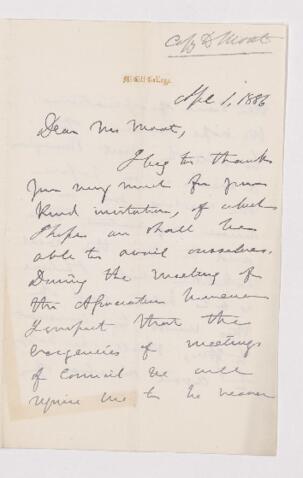 Copy D Moat
McGill College
Apl 1, 1886
Dear Mrs Moat,
I beg to thank
you very much for your
kind invitation, of which
I hope we shall be
able to avail ourselves.
During the meeting of
the Association however
I expect that the
exigencies of meetings
of Council &c will
require me to be nearer